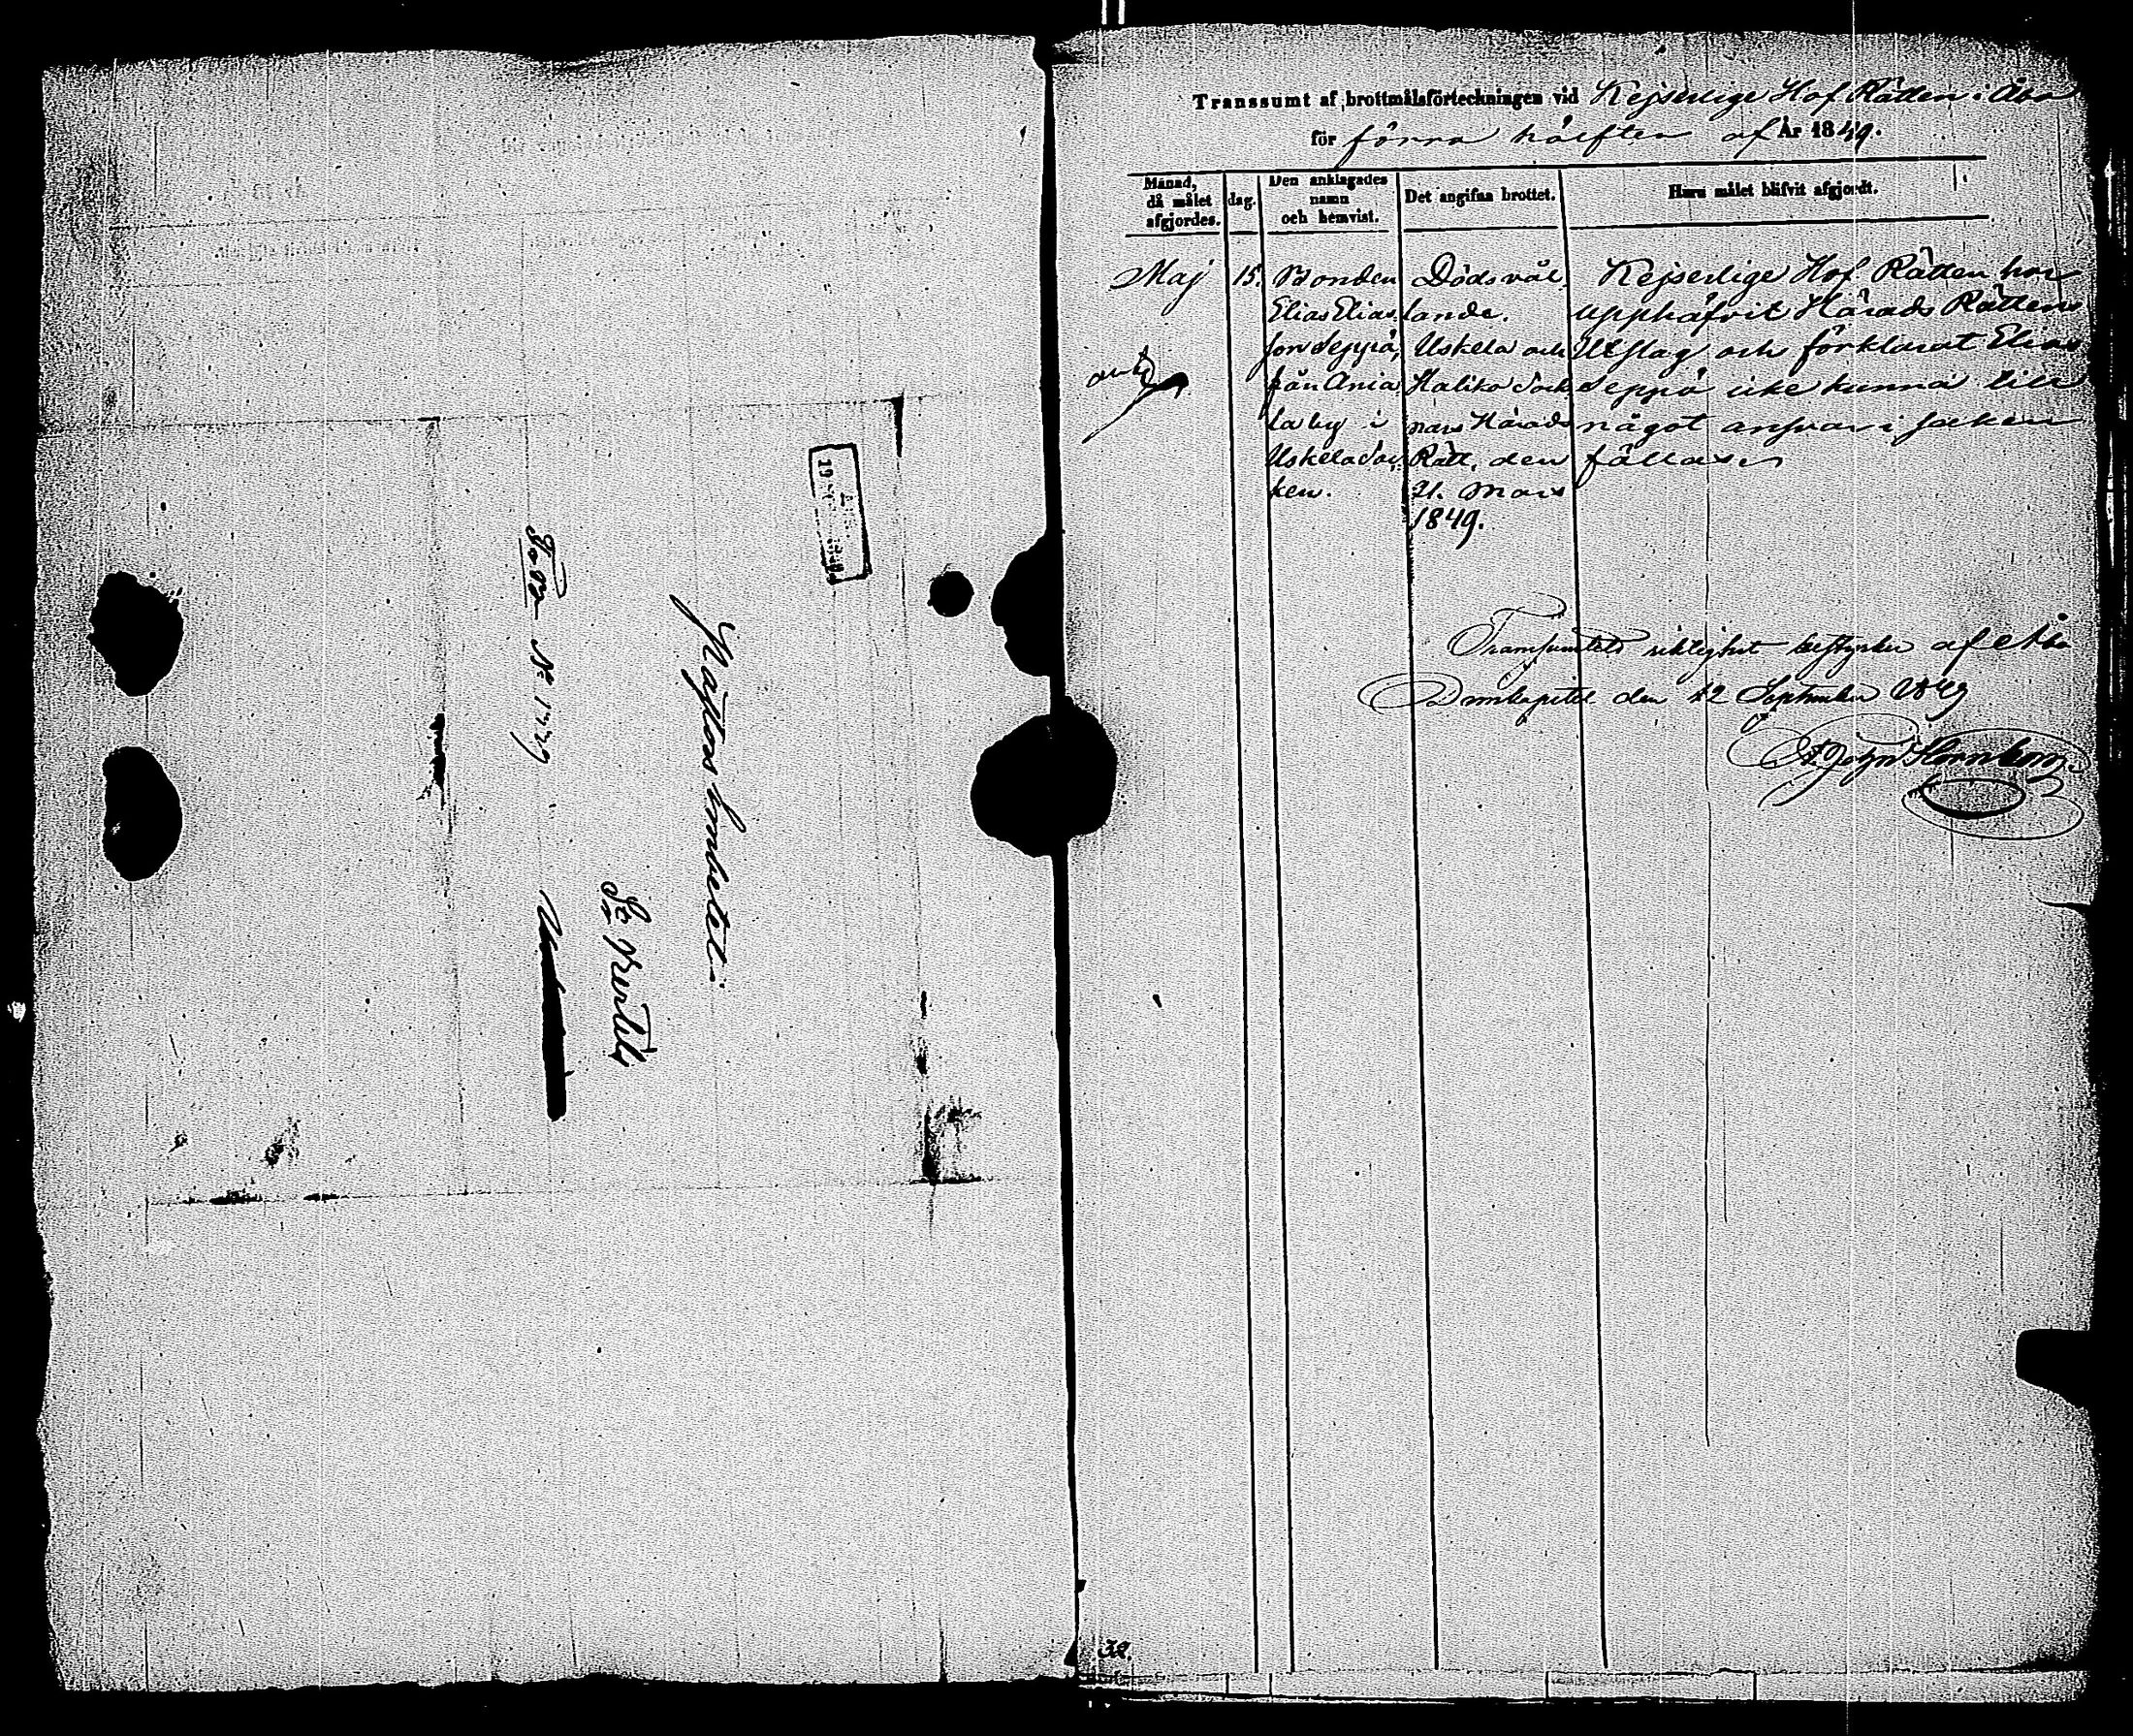 Pastors Embetet
St. Bertils
Transsumt af brottmålsförteckningen vid Kejserlige Hof Rätten i Åbo
för förra hälften af År 1849.
Månad, då målet afgjordes.
dag.
Den anklagades namn och hemvist.
Det angifna brottet.
Huru målet blifvit afgjordt.
Maj
15.
Bonden
Elias Elias
son Seppä,
från Ania
la by i
Uskela Soc
ken.
Dödsvål
lande.
Uskela och
Haliko Sock
nars Härads
Rätt, den
21. Mars
1849.
Kejserlige Hof Rätten har
upphäfvit Härads Rättens
Utslag och förklarat Elias
Seppä icke kunna till
något ansvar i saken
fällas
Transumtets riktighet bestyrker af Åbo
Domkapitel den 12 September 1849
Hornborg